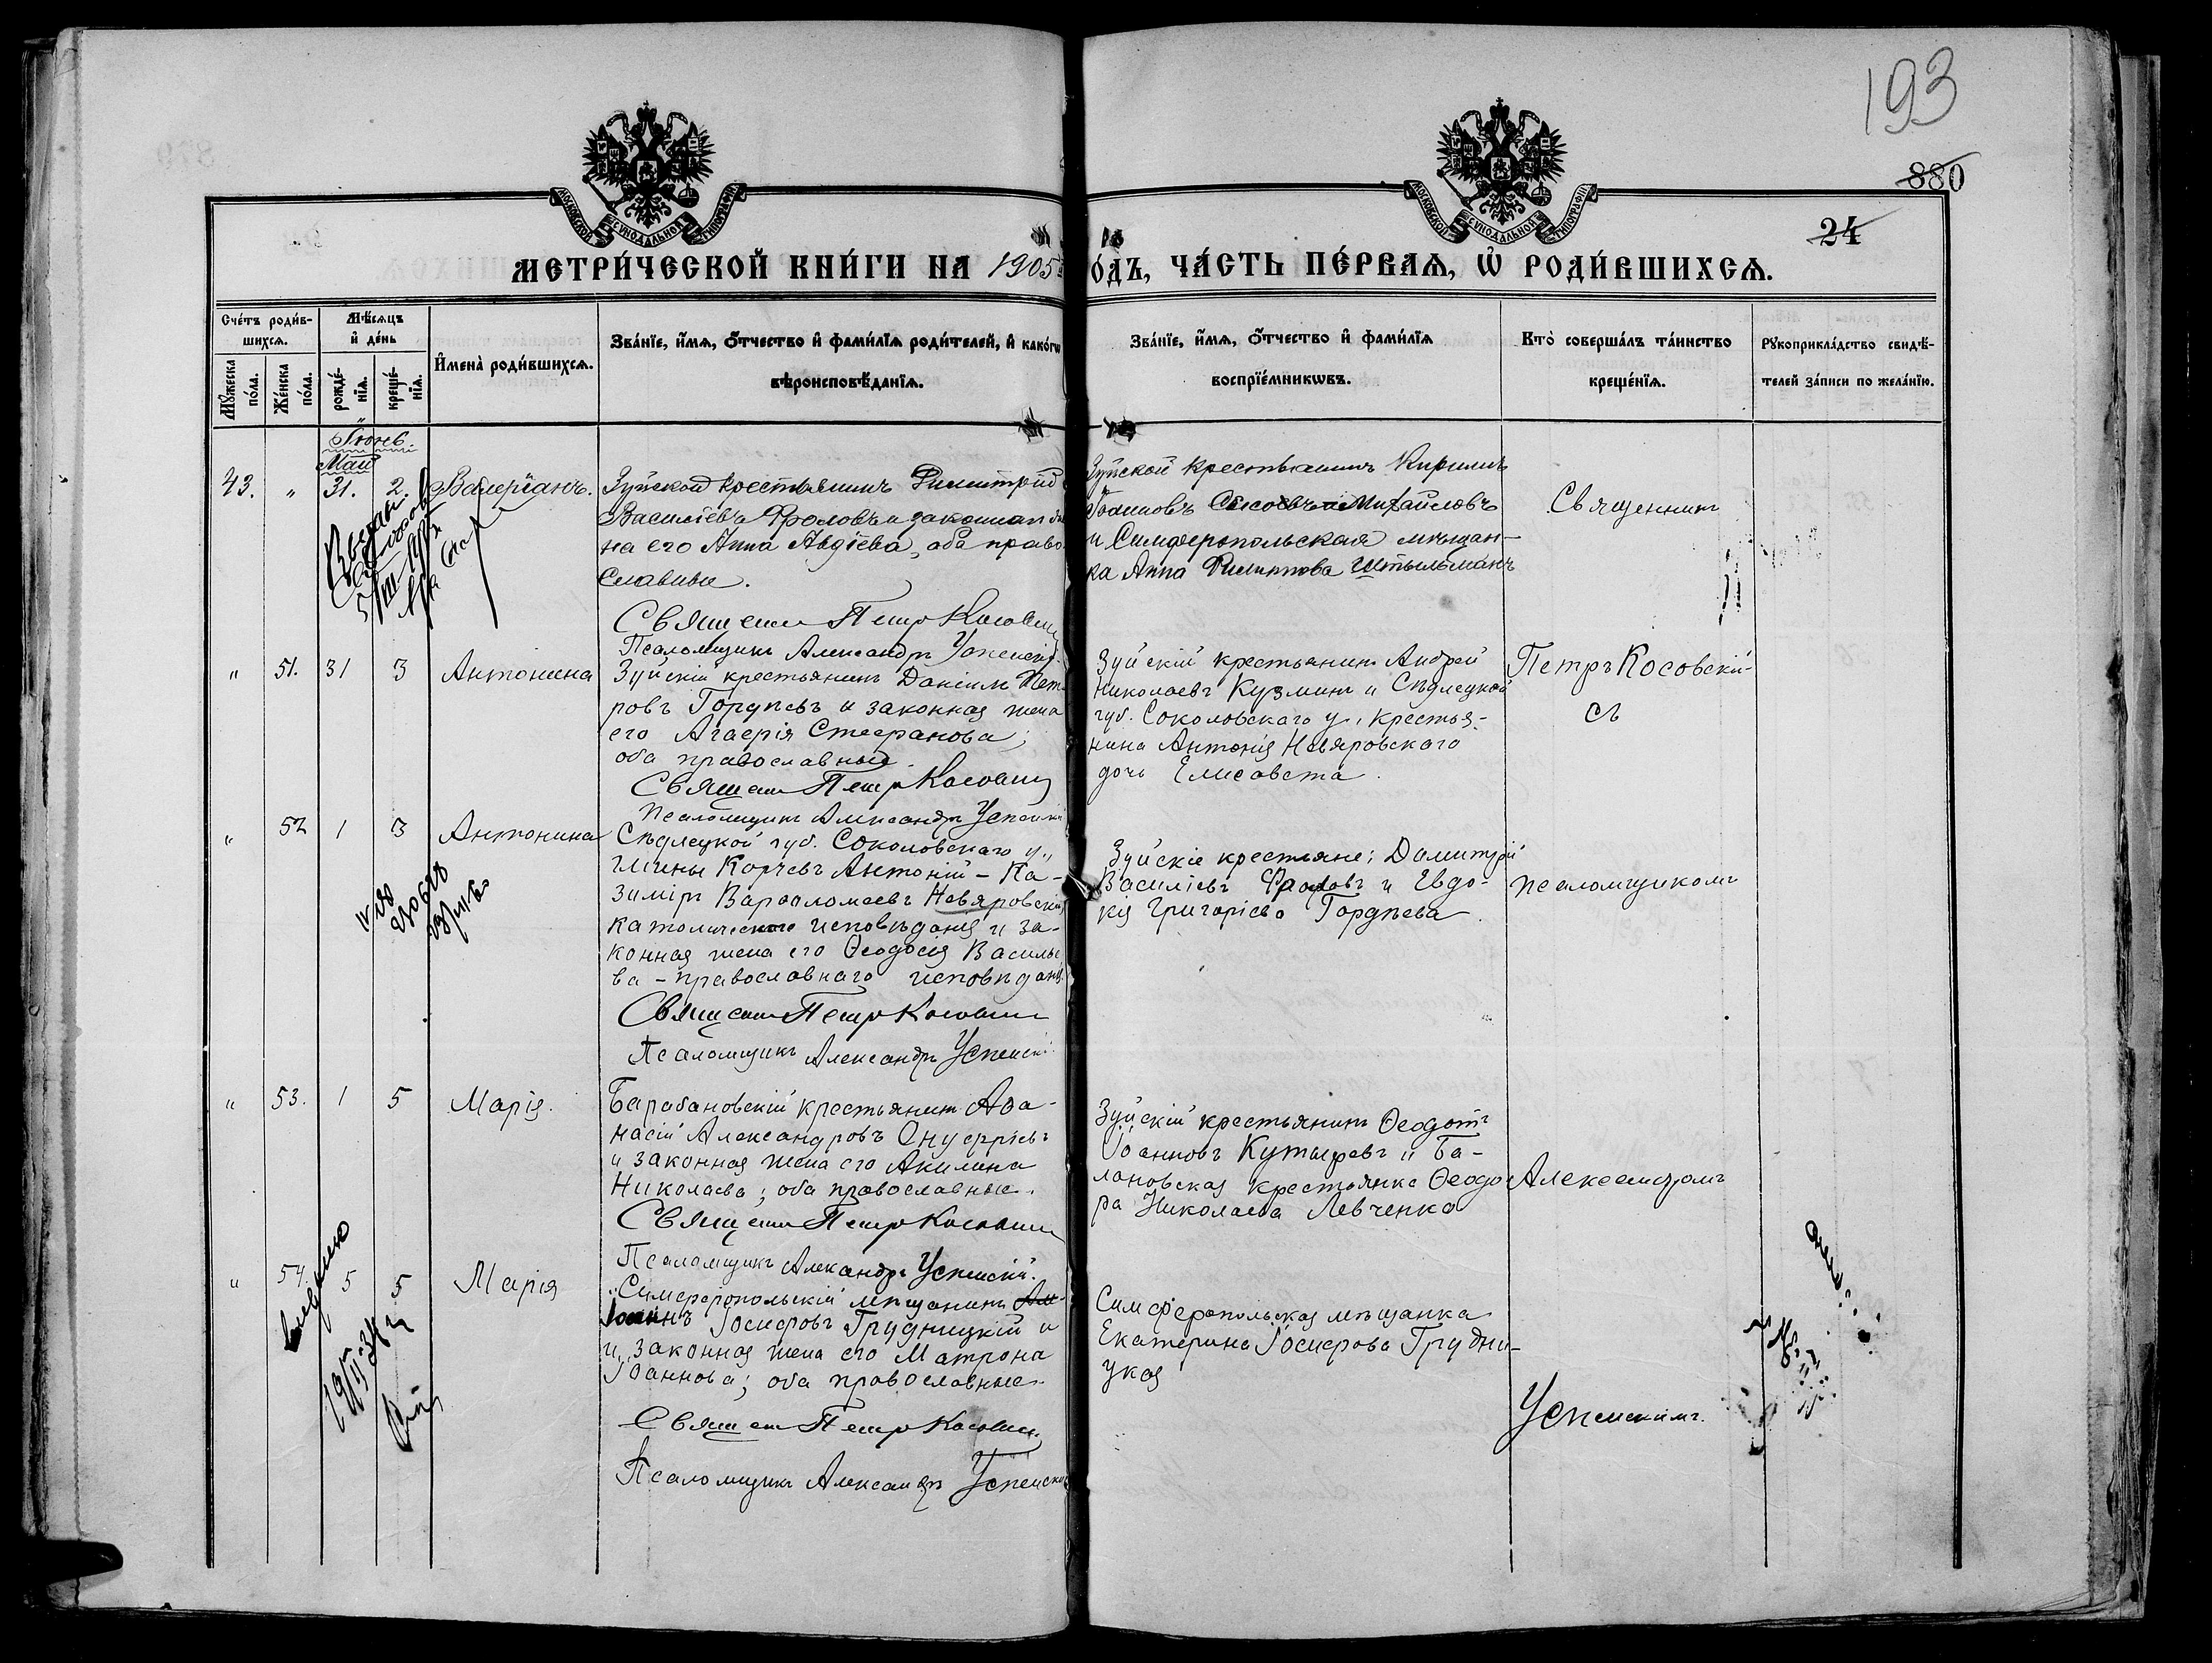 193
880
24
МОСКОВСКОЙ СѴНОДАЛЬНОЙ ТИПОГРАФІИ
МОСКОВСКОЙ СѴНОДАЛЬНОЙ ТИПОГРАФІИ
МЕТРИ́ЧЕСКОЙ КНИ́ГИ НА 1905 О́ДЪ, ЧА́СТЬ ПЕ́РВАѦ, Ѽ РОДИ́ВШИХСѦ.
Сче́тъ роди́в-
шихсѧ.
Мꙋ́жеска по́ла.
Же́нска по́ла.
Мѣ́сѧцъ
и҆ де́нь
рожде́-
нїѧ.
креще́-
нїѧ.
И҆мена̀ роди́вшихсѧ.
Зва́нїе, и҆́мѧ, ѻ҆́тчество и҆ фами́лїѧ роди́телей, и҆ како́гѡ
вѣроисповѣ́данїѧ.
Зва́нїе, и҆́мѧ, ѻ҆́тчество и҆ фами́лїѧ
воспрїе́мникѡвъ.
Кто̀ соверша́лъ та́инство
креще́нїѧ.
Рꙋкоприкла́дство свидѣ́-
телей за́писи по жела́нїю.
Іюнь.
Май
43. " 31. 2. Валеріанъ.
Зуйской крестьянинъ Димитрій
Василіевъ Фроловъ и законная
на его Анна Авдіева, оба право-
славные.
Священ Петр Косовскій
Псаломщикъ Александръ Успенскій.
Зуйской крестьянинъ Кирилъ
Іоанновъ Сысоевъ Михайловъ
и Симферопольская мѣщан-
ка Анна Филиппова Штыльманъ
Священникъ
" 51. 31 3 Антонина
Зуйскій крестьянинъ Даніилъ Пет-
ровъ Гордѣевъ и законная жена
его Агаѳія Стефанова;
оба православные.
Священ Петр Косовскій
Псаломщикъ Александръ Успенскій
Зуйскій крестьянинъ Андрей
Николаевъ Кузминъ и Сѣдлецкой
губ. Соколовскаго у., крестья-
нина Антонія Невяровскаго
дочь Елисавета.
Петръ Косовскій
съ
" 52 1 3 Антонина
Сѣдлецкой губ. Соколовскаго у.,
гмины Корчевъ Антоній - Ка-
зиміръ Варѳоломеевъ Невяровскій
католическаго исповѣданія и за-
конная жена его Ѳеодосія Василье-
ва - православнаго исповѣданія
Священ Петр Косовскій
Псаломщикъ Александръ Успенскій
Зуйскіе крестьяне: Димитрій
Василіевъ Фроловъ и Евдо-
кія Григоріева Гордѣева.
псаломщикомъ
" 53. 1 5 Марія.
Барабановскій крестьянинъ Аѳа-
насій Александровъ Онуфріевъ
и законная жена его Акилина
Николаева; оба православные.
Священ Петр Косовскій
Псаломщикъ Александръ Успенскій.
Зуйскій крестьянинъ Ѳеодотъ
Іоанновъ Кутыревъ и Ба-
лановская крестьянка Ѳеодо-
ра Николаева Левченко
Александромъ
" 54. 5 5 Марія
Симферопольскій мѣщанинъ
Іоаннъ Іосифовъ Грудницкій и
и законная жена его Матрона
Іоаннова; оба православные.
Священ Петр Косовскій
Псаломщикъ Александръ Успенскій
Симферопольская мѣщанка
Екатерина Іосифова Грудни-
цкая
Успенскимъ.